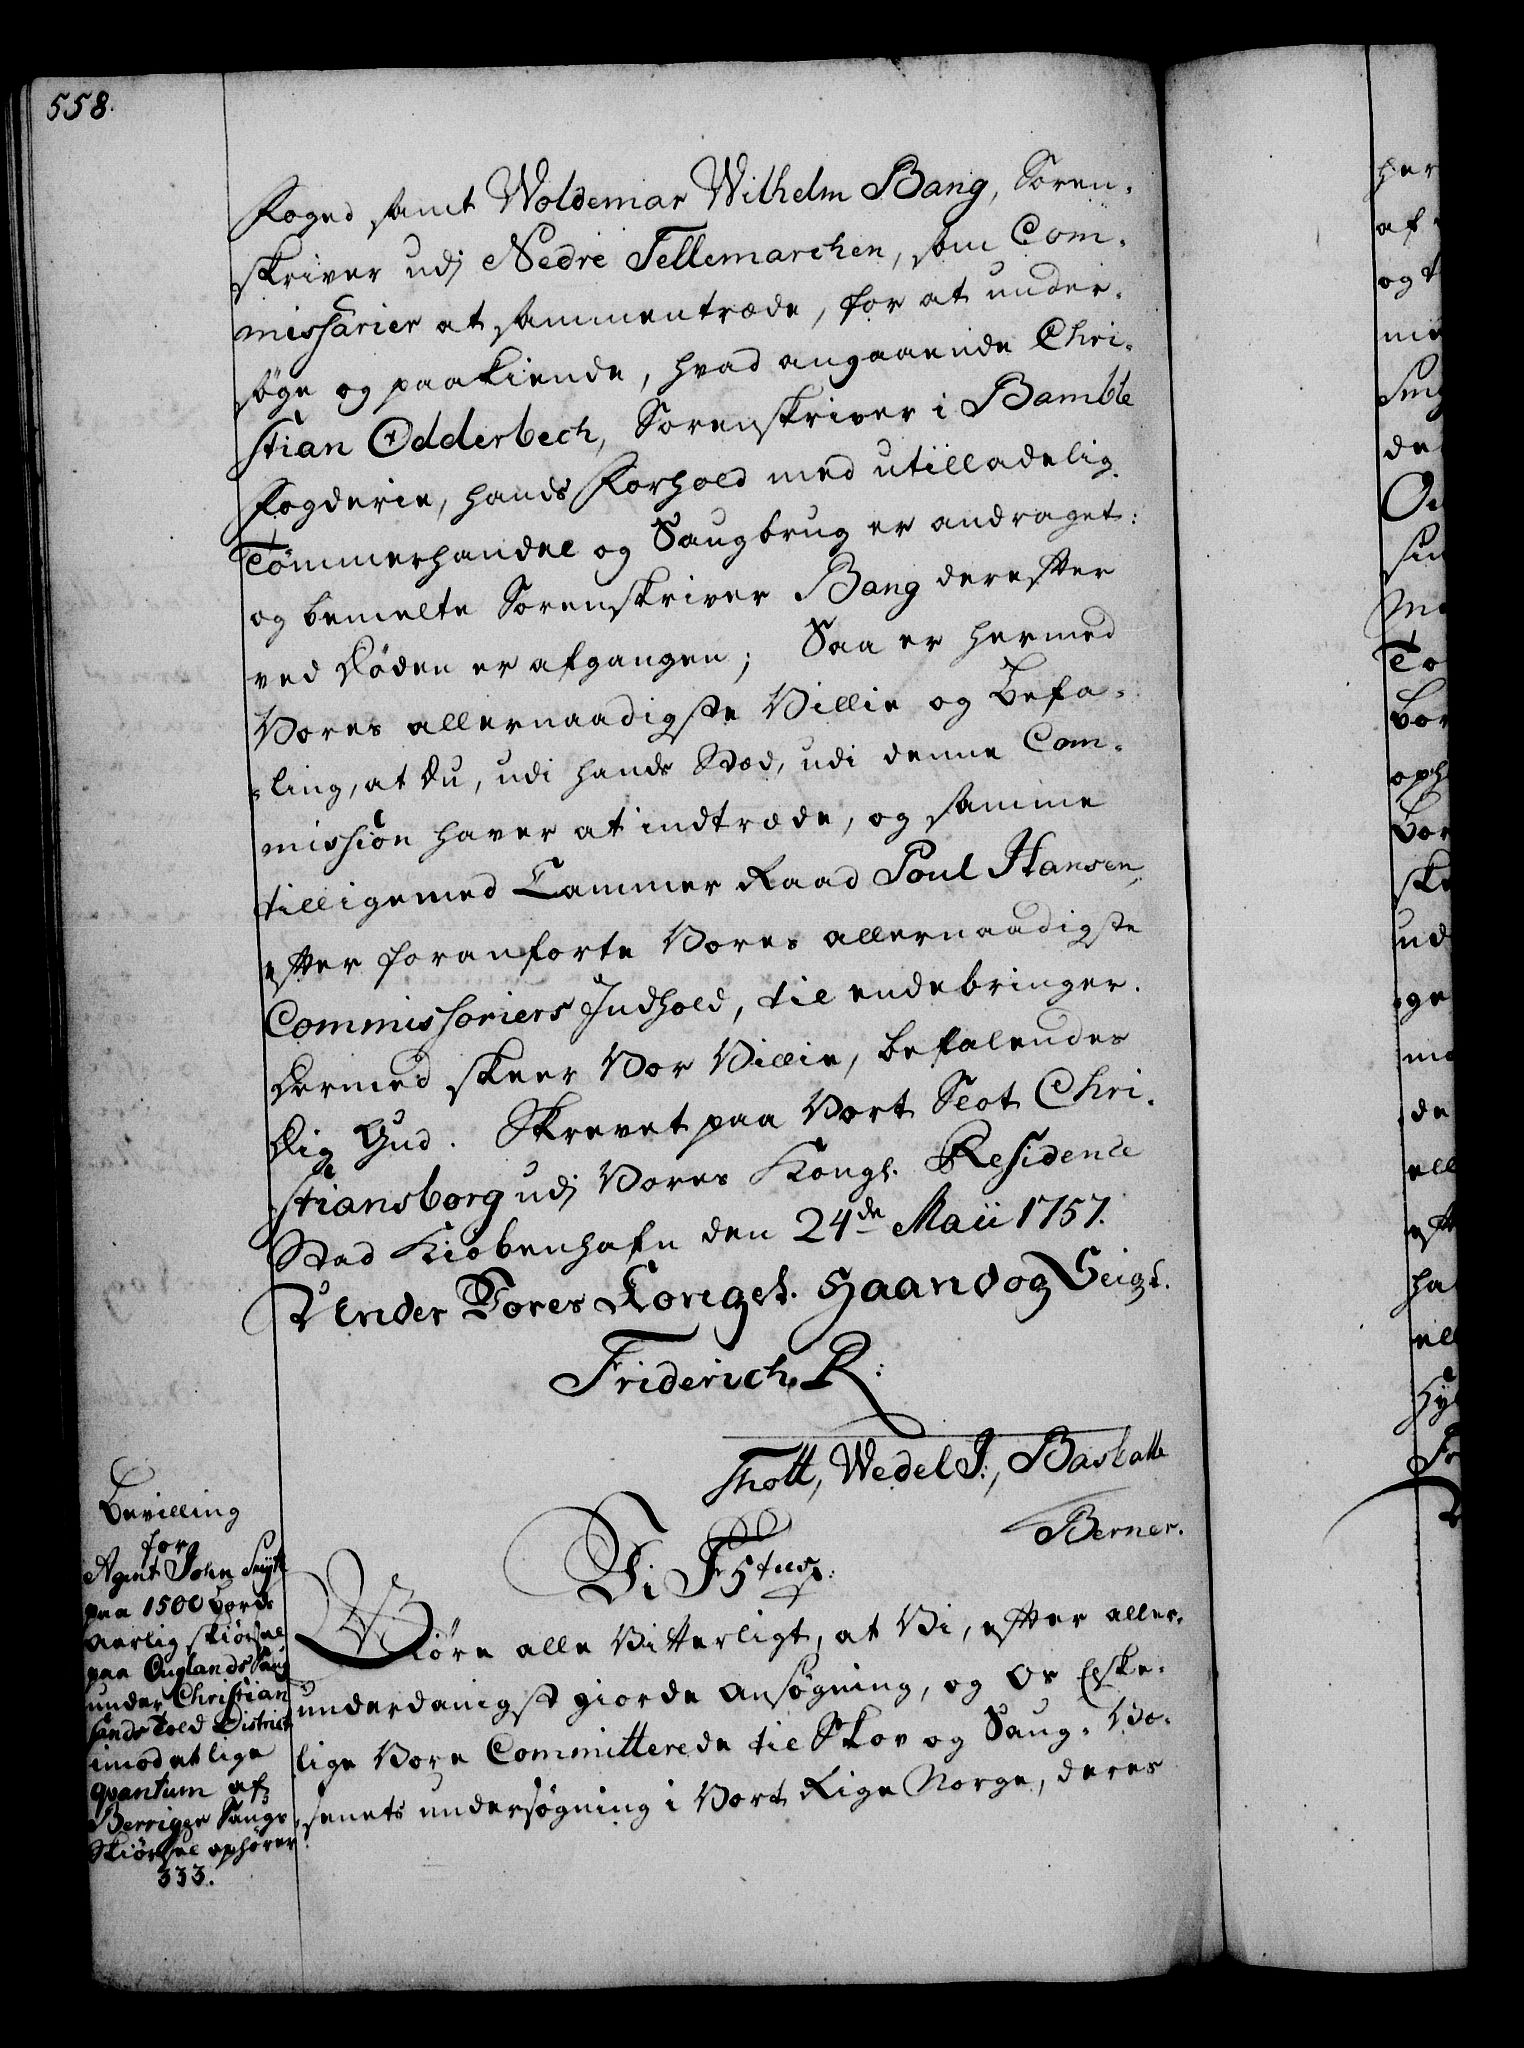 558.
Foged samt Woldemar Wilhelm Bang, Soren-
skriver udj Nedre Tellemarchen, som Com-
missarier at sammentræde, for at under-
søge og paakiende, hvad angaaende Chri-
stian Odderbech, Sorenskriver i Bamble
Fogderie, hands Forhold med utilladelig
Tömmerhandel og Saugbrug er andraget:
og bemelte Sorenskriver Bang derefter
ved Døden er afgangen; Saa er hermed
Vores allernaadigste Villie og Befa-
-ling, at Du, udi hands Stæd, udi denne Com-
mission haver at indtræde, og samme
tilligemed Cammer Raad Poul Hansen,
efter foranførte Vores allernaadigste
Commissoriers Indhold, til endebringer.
Dermed skeer Vor Villie, befalendes
Dig Gud. Skrevet paa Vort Slot Chri-
stiansborg udj Vores Kongl. Residence
Stad Kiøbenhafn den 24de Maii 1757.
Under Vores Kongel. Haand og Seigl.
Friderich R:
Thott, Wedel J:, Barkatte
Berner.
Bevilling
for
Agent John Smith
paa 1500 Bords
aarlig Skiørsel
paa Englands Saug
under Christian
sands Told District
imod at lige
qvantum af
Berrigge Saugs
Skiørsel ophører
333.
Vi Fr 5tus:
Giöre alle Vitterligt, at Vi, efter aller-
underdanigst giorde Ansøgning, og Os Elske-
lige Vore Committerede til Skov og Saug-Væ-
senets undersøgning i Vort Rige Norge, deres